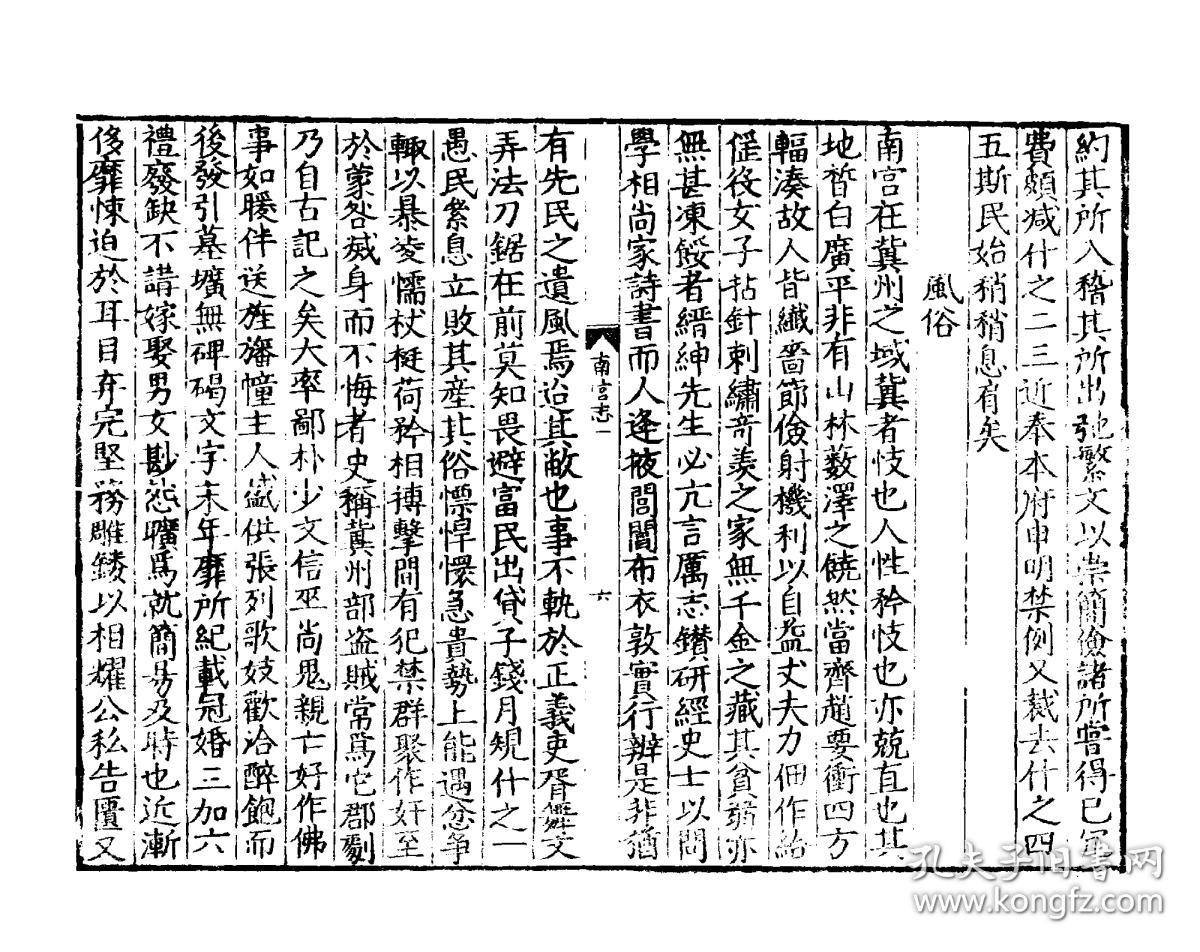 約其所入稽其所出弛繁文以崇簡儉諸所嘗得已軍
費頗减什之二三近奉本府申明禁例又裁去什之四
五斯民始稍稍息肩矣
風俗
南宫在冀州之域冀者忮也人性矜忮也亦兢直也其
地晳白廣平非有山林數澤之饒然當齊趙要衝四方
輻湊故人皆纎嗇節儉射機利以自益丈夫力佃作給
徭役女子拈針刺繡竒羡之家無千金之藏其貧窮亦
無甚凍餒者縉紳先生必亢言厲志鑚研經史士以問
學相尚家詩書而人逢掖閭閻布衣敦實行辨是非猶
南宫志一
六
有先民之遺風焉迨其敝也事不軌於正義吏胥舞文
弄法刀鋸在前莫知畏避富民出貸子錢月規什之一
愚民絫息立敗其產其俗慓悍懷急貴勢上能遇忿争
輙以暴凌懦杖梃荷矜相搏擊間有犯禁群聚作奸至
於蒙咎烕身而不悔者史稱冀州部盗賊常爲它郡劇
乃自古記之矣大率鄙朴少文信巫尚鬼親亡好作佛
事如暖伴送旌旛幢主人盛供張列歌妓歡洽醉飽而
後發引墓壙無碑碣文字末年靡所紀載冠婚三加六
禮廢缺不講嫁娶男女尠怨曠爲就簡易及時也近漸
侈靡悚迫於耳目弃完堅務雕鏤以相耀公私告匱又
孔夫子旧书网
www.kongfz.com